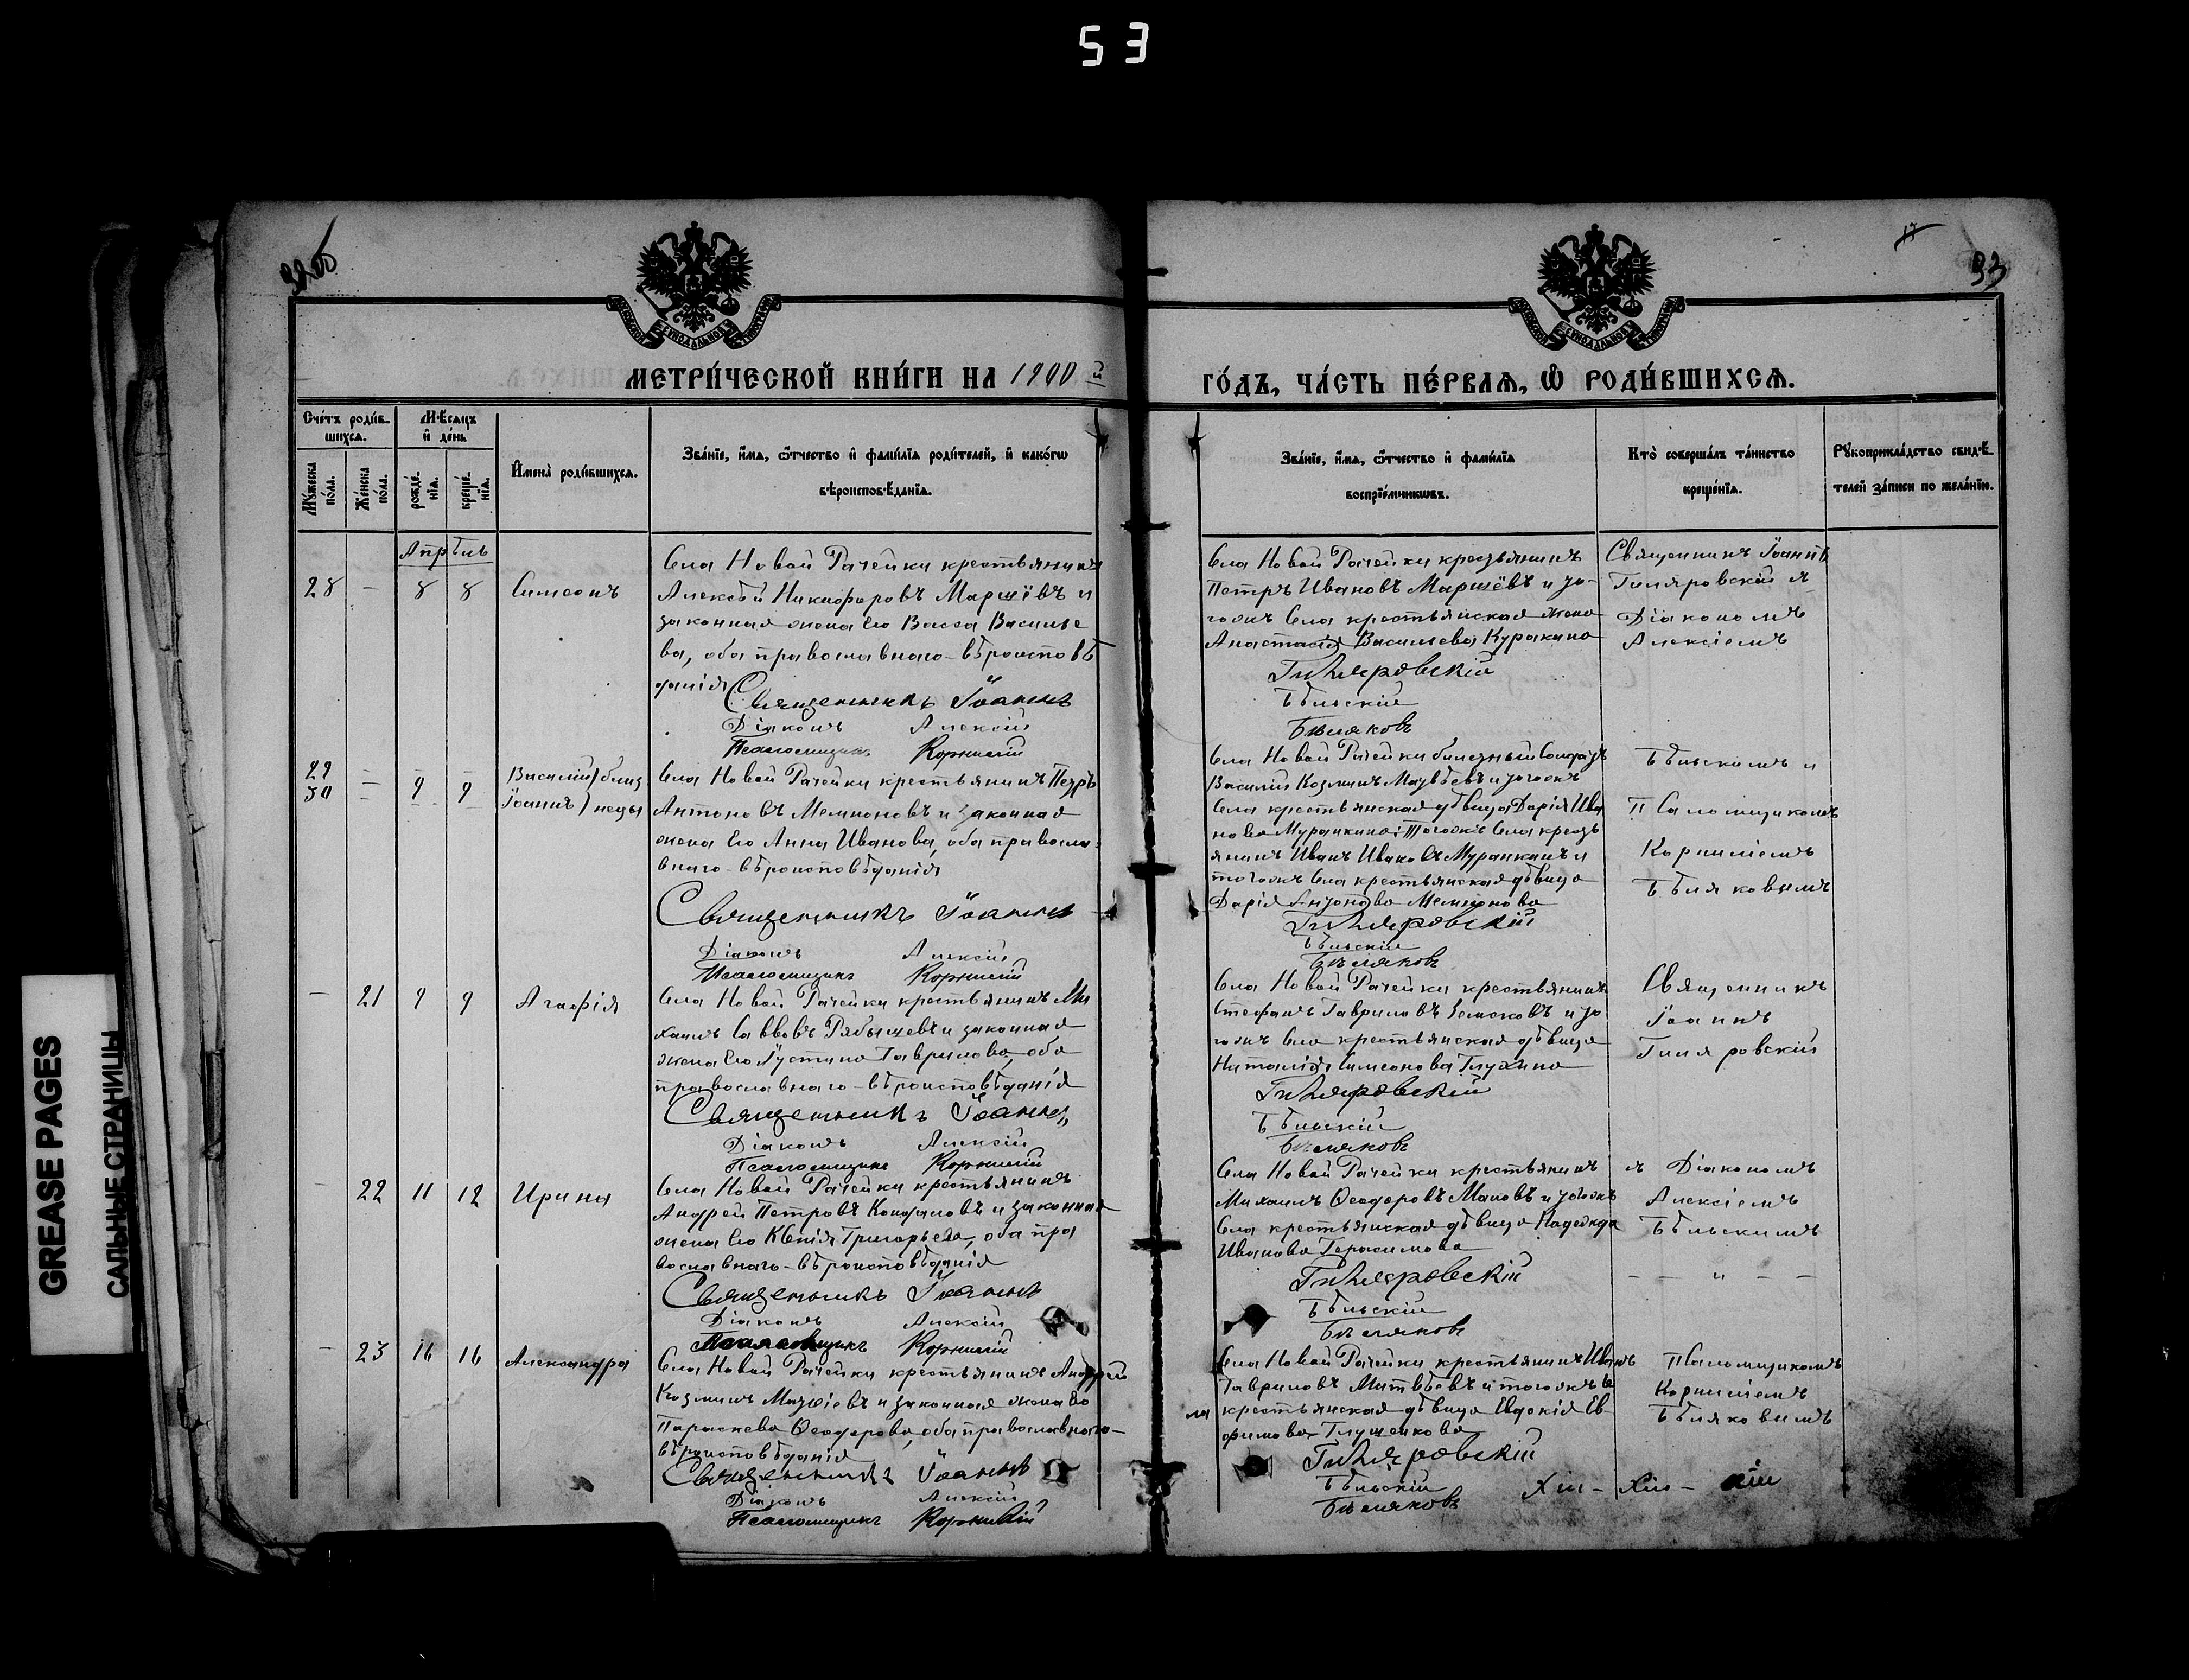 53
32 об
17
33
МЕТРИ́ЧЕСКОЙ КНИ́ГИ НА 1900 й
ГО́ДЪ, ЧА́СТЬ ПЕ́РВАѦ, Ѡ РОДИ́ВШИХСѦ.
Сче́тъ роди́в-
шихсѧ.
Мѣ́сѧцъ
и де́нь
Мꙋ́жеска по́ла.
Же́нска по́ла.
рожде́-
нїѧ.
креще́-
нїѧ.
И҆мена̀ роди́вшихсѧ.
Зва́нїе, и҆́мѧ, ѻ҆́тчество и҆ фами́лїѧ роди́телей, и҆ како́гѡ
вѣроисповѣ́данїѧ.
Зва́нїе, и҆́мѧ, ѻ҆́тчество и҆ фами́лїѧ
воспрїе́мникѡвъ.
Кто̀ соверша́лъ та́инство
креще́нїѧ.
Рꙋкоприкла́дство свидѣ́-
телей за́писи по жела́нїю.
Апрѣль
28 – 8 8 Симеонъ
Села Новой Рачейки крестьянинъ
Алексѣй Никифоровъ Марцёвъ и
законная жена его Васса Василье
ва, оба православнаго-вѣроисповѣ
данія
Священникъ Іоаннъ
Діаконъ Алексій
Псаломщикъ Корнилій
Села Новой Рачейки крестьянинъ
Петръ Ивановъ Марцёвъ и то-
гожъ села крестьянская жена
Анастасія Васильева Куракина
Гиляровскій
Бѣльскій
Бѣляковъ
Священникъ Іоаннъ
Гиляровскій съ
Діакономъ
Алексіемъ
29 – 9 9 Василій) близ
30 – Іоаннъ) нецы
Села Новой Рачейки крестьянинъ Петръ
Антоновъ Мемноновъ и законная
жена его Анна Иванова, оба правосла-
внаго-вѣроисповѣданія
Священникъ Іоаннъ
Діаконъ Алексій
Псаломщикъ Корнилій
Села Новой Рачейки билетный Солдатъ
Василій Козминъ Матвѣевъ и тогожъ
села крестьянская дѣвица Дарія Ива
нова Муранкина; Тогожъ села кресть
янинъ Иванъ Ивановъ Муранкинъ и
тогожъ села крестьянская дѣвица
Дарія Антонова Мемнонова
Гиляровскій
Бѣльскій
Бѣляковъ
Бѣльскимъ и
Псаломщикомъ
Корниліемъ
Бѣляковымъ
– 21 9 9 Агафія
Села Новой Рачейки крестьянинъ Ми
хаилъ Саввовъ Рябышевъ и законная
жена его Іустина Гаврилова, оба
православнаго-вѣроисповѣданія
Священникъ Іоаннъ
Діаконъ Алексій
Псаломщикъ Корнилій
Села Новой Рачейки крестьянинъ
Стефанъ Гавриловъ Земсковъ и то
гожъ села крестьянская дѣвица
Наталія Симеонова Глухина
Гиляровскій
Бѣльскій
Бѣляковъ
Священникъ
Іоаннъ
Гиляровскій
– 22 11 12 Ирина
Села Новой Рачейки крестьянинъ
Андрей Петровъ Кондаловъ и законная
жена его Ксенія Григорьева, оба пра
вославнаго-вѣроисповѣданія
Священникъ Іоаннъ
Діаконъ Алексій
Псаломщикъ Корнилій
Села Новой Рачейки крестьянинъ
Михаилъ Ѳеодоровъ Маловъ и тогожъ
села крестьянская дѣвица Надежда
Иванова Герасимова
Гиляровскій
Бѣльскій
Бѣляковъ
съ Діакономъ
Алексіемъ
Бѣльскимъ
– – " – –
– 23 16 16 Александра
Села Новой Рачейки крестьянинъ Андрей
Козминъ Матвіевъ и законная жена его
Параскева Ѳеодорова, оба православнаго-
вѣроисповѣданія
Священникъ Іоаннъ
Діаконъ Алексій
Псаломщикъ Корнилій
Села Новой Рачейки крестьянинъ Иванъ
Гавриловъ Матвѣевъ и тогожъ се
ла крестьянская дѣвица Евдокія Ев-
фимова Глущенкова
Гиляровскій
Бѣльскій
Бѣляковъ
Псаломщикомъ
Корниліемъ
Бѣляковымъ
GREASE PAGES
САЛЬНЫЕ СТРАНИЦЫ